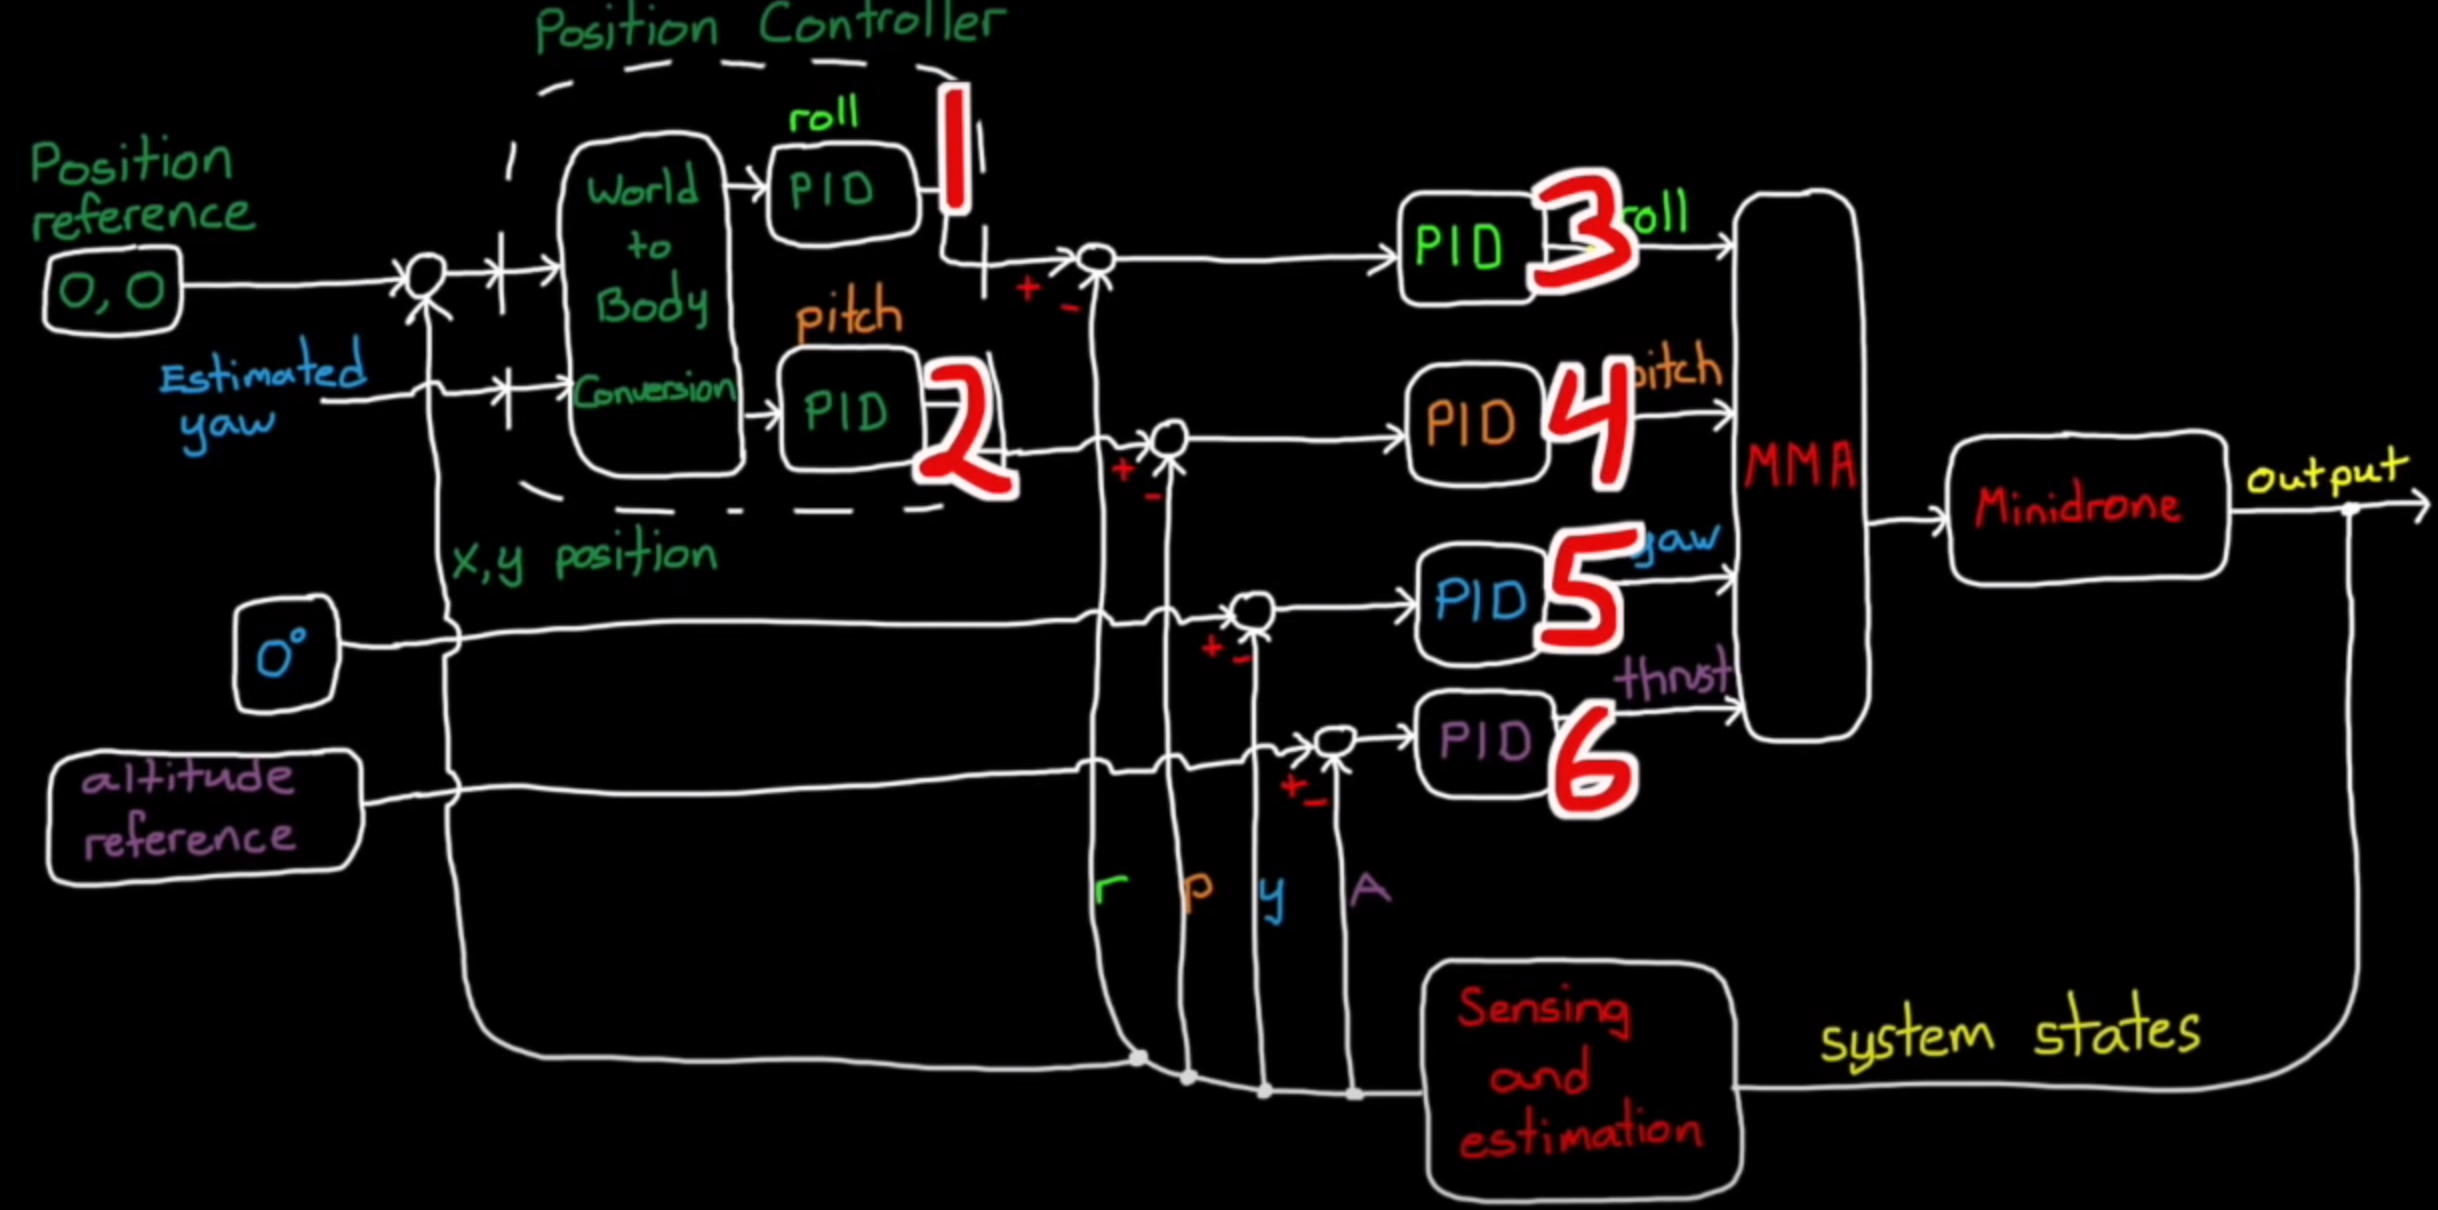 Position Controller
Position
reference
0, 0
Estimated
yaw
World
to
Body
Conversion
roll
PID
1
pitch
PID
2
x, y position
0°
altitude
reference
+
-
+
-
+
-
+
-
PID
3
roll
PID
4
pitch
PID
5
yaw
PID
6
thrust
MMA
Minidrone
output
r
p
y
A
Sensing
and
estimation
system states